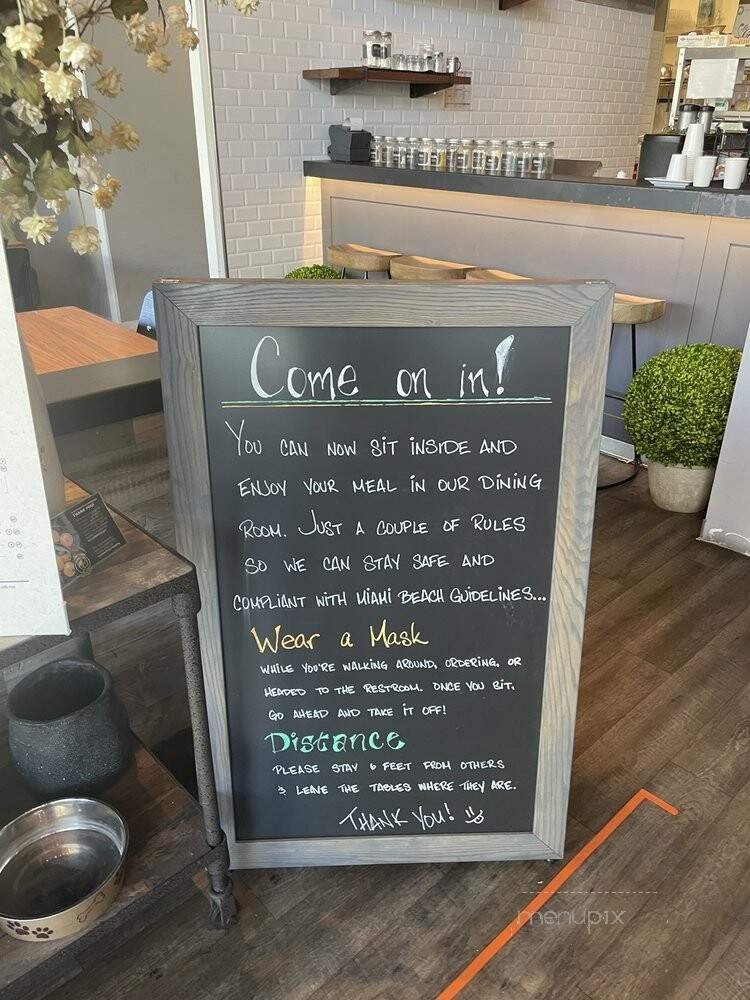 Come on in!
You can now sit inside and
enjoy your meal in our dining
room. Just a couple of rules
so we can stay safe and
compliant with Miami Beach guidelines...
Wear a Mask
while you're walking around, ordering, or
headed to the restroom. Once you sit,
go ahead and take it off!
Distance
Please stay 6 feet from others
& leave the tables where they are.
Thank you!
menupix